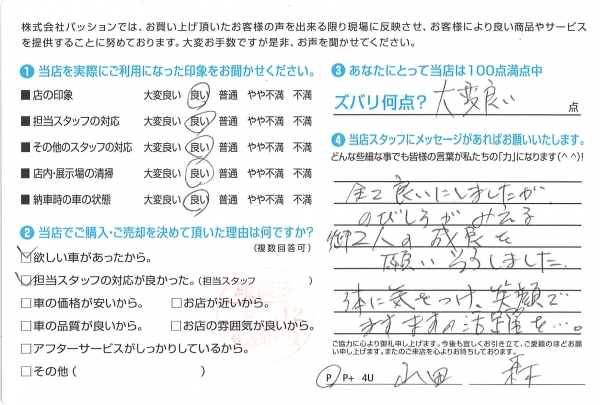 株式会社パッションでは、お買い上げ頂いたお客様の声を出来る限り現場に反映させ、お客様により良い商品やサービス
を提供することに努めております。大変お手数ですが是非、お声を聞かせてください。
1 当店を実際にご利用になった印象をお聞かせください。
■店の印象 大変良い 良い 普通 やや不満 不満
■担当スタッフの対応 大変良い 良い 普通 やや不満 不満
■その他のスタッフの対応 大変良い 良い 普通 やや不満 不満
■店内・展示場の清掃 大変良い 良い 普通 やや不満 不満
■納車時の車の状態 大変良い 良い 普通 やや不満 不満
2 当店でご購入・ご売却を決めて頂いた理由は何ですか?
(複数回答可)
□欲しい車があったから。
□担当スタッフの対応が良かった。(担当スタッフ )
□車の価格が安いから。 □お店が近いから。
□車の品質が良いから。 □お店の雰囲気が良いから。
□アフターサービスがしっかりしているから。
□その他( )
3 あなたにとって当店は100点満点中
ズバリ何点? 大変良い 点
4 当店スタッフにメッセージがあればお願いいたします。
どんな些細な事でも皆様の言葉が私たちの「力」になります(^^)!
全て良いにしましたが
のびしろがみえる
御二人の成長を
願いそうしました。
体に気をつけ、笑顔で
ますますの活躍を…。
ご協力に心より御礼申し上げます。今後も宜しくお引き立て、ご愛顧のほどお願
い申し上げます。またのご来店を心よりお待ちしております。
P P+ 4U 山田 森